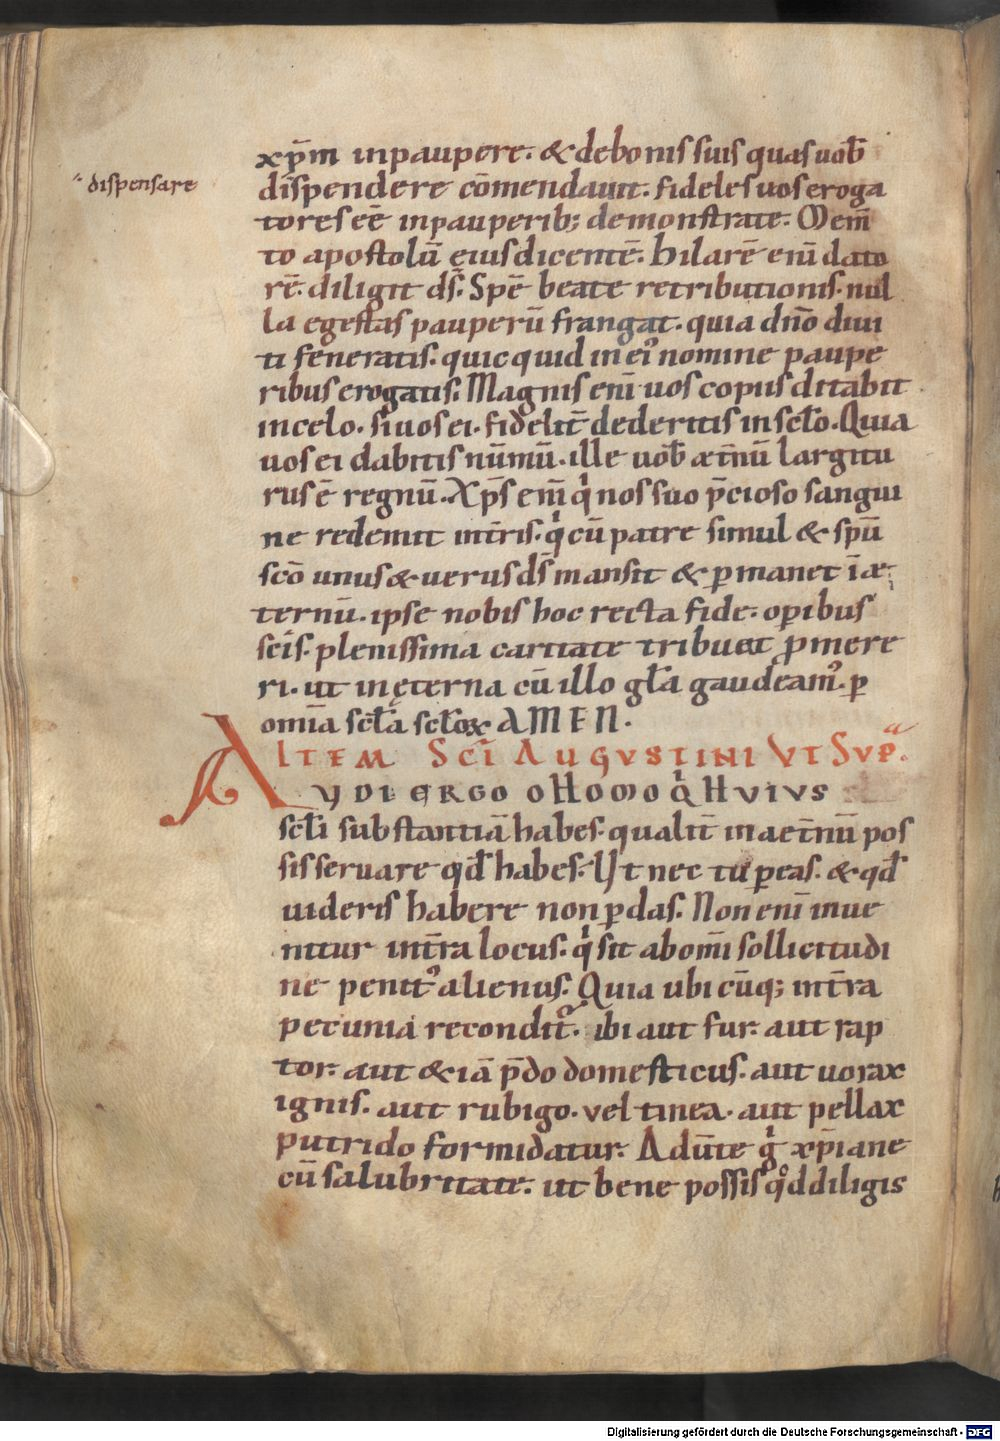 xp̄m inpaupere. & debonis suis quas uob̄
dispensare
dispendere cōmendauit. fideles uos eroga
tores eē inpauperib; demonstrate. Mem̄
to apostolū eius dicentē. hilarē enī dato
rē. diligit dś. Spē beate retributionis. nul
la egestas pauperū frangat. quia dn̄o diui
ti feneratis. quicquid in ei᷒ nomine paupe
ribus erogatis. Magnis enī uos copiis ditabit
incelo. si uos ei. fidelit̄ dederitis in scl̄o. Quia
uos ei dabitis nūmū. ille uob̄ æt̄nū largitu
rus ē regnū. Xp̄s em̄ qͥ nos suo p̄cioso sangui
ne redemit int̄ris. qͥ cū patre simul & sp̄u
scō unus & uerus dś mansit & ꝑmanet īæ
ternū. ipse nobis hoc recta fide. oꝑibus
scīs. plenissima caritate tribuat ꝓmere
ri. ut in ęterna cū illo gl̄a gaudeam᷒. ꝑ
omīa scl̄a scl̄oꝝ AMEN.
ITEM SCĪ AUGUSTINI UT SUPͣ.
AUDI ERGO O HOMO QͥHUIUS
scl̄i substantiā habes. qualit̄ in aet̄nū pos
sis seruare qd̄ habes. Ut nec tu ꝑeas. & qd̄
uideris habere non ꝑdas. Non enī inue
nitur int̄ra locus. qͥ sit ab om̄i sollicitudi
ne penit᷒ alienus. Quia ubi cūq; int̄ra
pecunia recondit᷑. ibi aut fur. aut rap
tor. aut &iā p̄do domesticus. aut uorax
ignis. aut rubigo. vel tinea. aut pellax
putrido formidatur. Adūte gͥ xp̄iane
cū salubritate. ut bene possis qͦd diligis
Digitalisierung gefördert durch die Deutsche Forschungsgemeinschaft - DFG